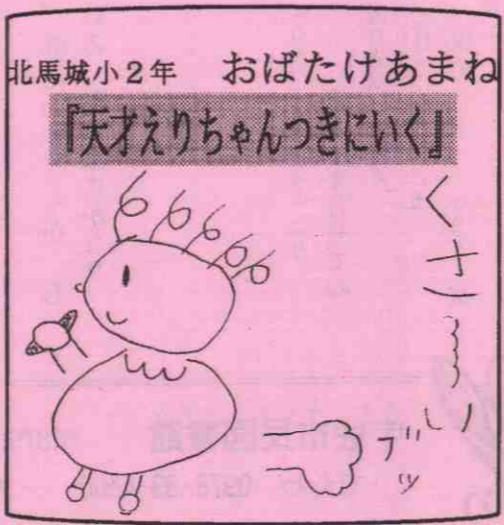 北馬城小2年　おばたけあまね
『天才えりちゃんつきにいく』
くさ〜い
ブッ